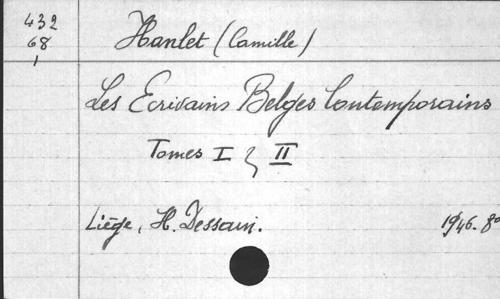 432
68
1
Hanlet (Camille)
Les Ecrivains Belges Contemporains
Tomes I & II
Liège, H. Dessain. 1946. 8º